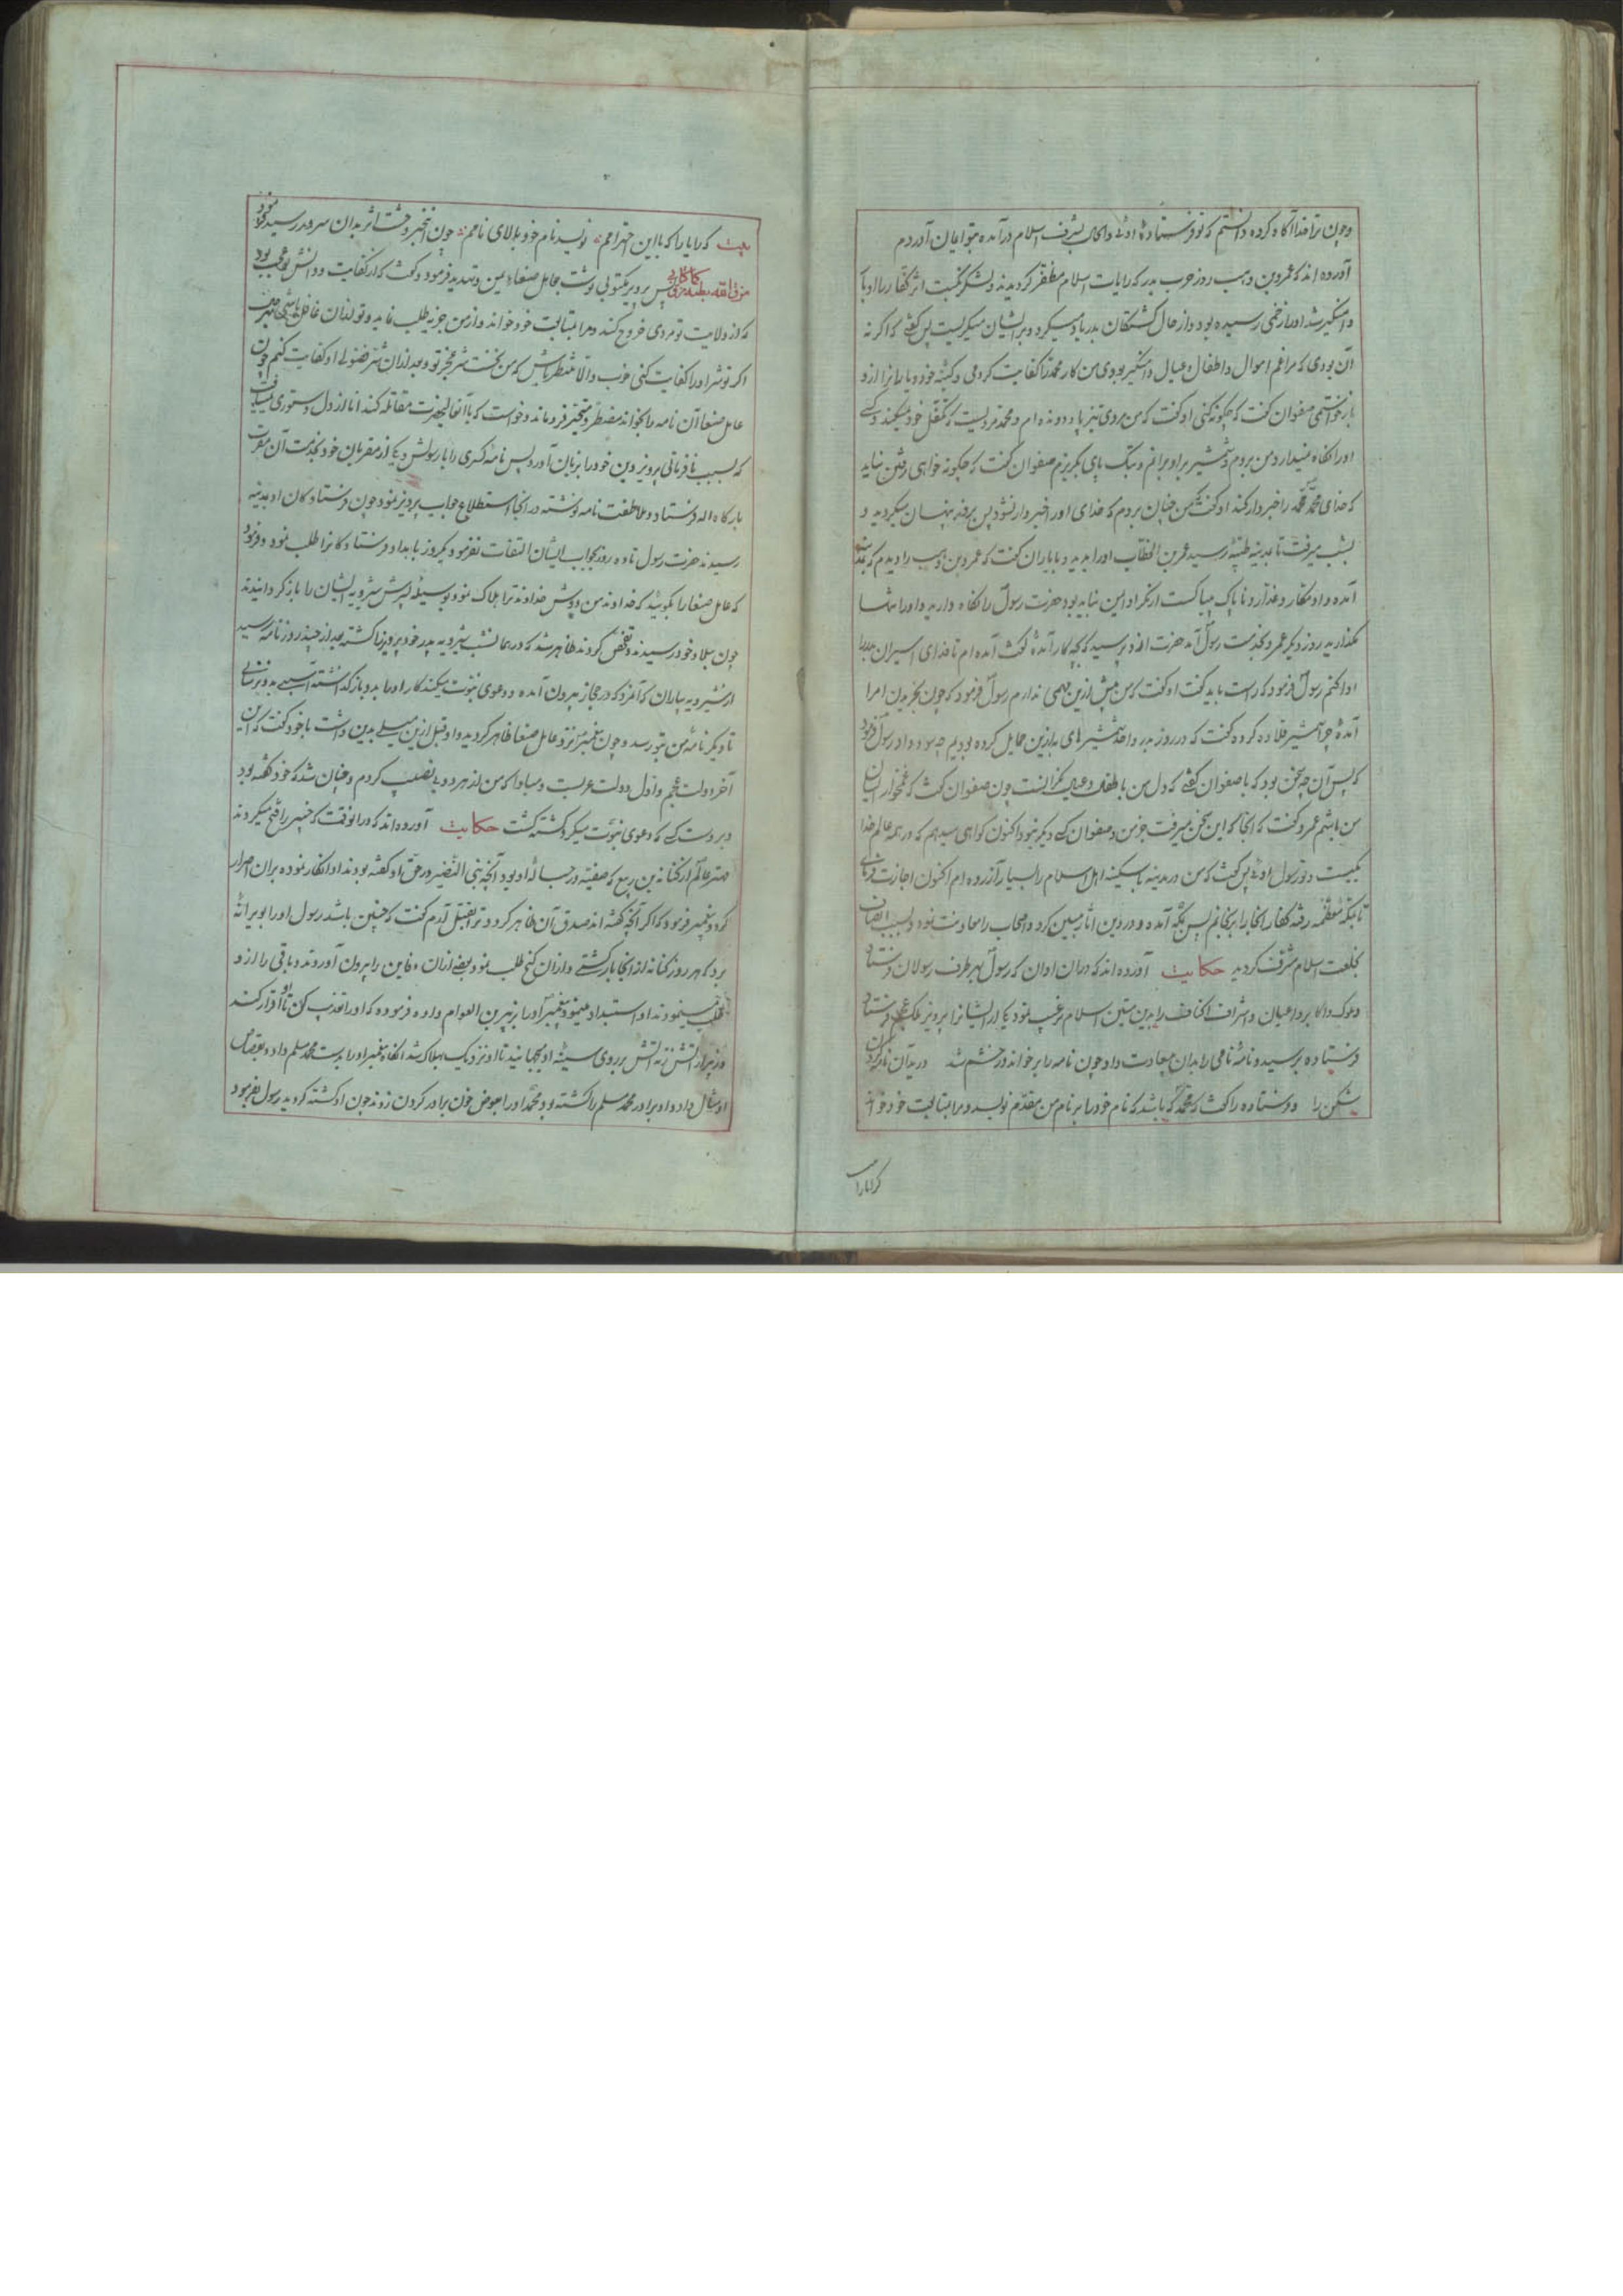 وچون ترا خدا آگاه کرده دانستم که تو فرستادهٔ اوئی والحال بشرف اسلام درآمده بتو ایمان آوردم
آورده اند که عمروبن وهب روز حرب بدر که رایات اسلام مظفر گردیدند ولشکر نکبت اثر کفار را ادبار
دامنگیر شد اورا زخمی رسیده بود واز حال کشتگان بدر یاد میکرد وبر ایشان میگریست پس گفت که اگر نه
آن بودی که مرا غم اموال واطفال وعیال دامنگیر بودی من کار محمد را کفایت کردمی وکینهٔ خود ویارانرا ازو
باز خواستمی صفوان گفت که چگونه کنی او گفت که من مردی تیز پا ودونده ام ومحمد مردیست که تنقل خود میکند وکسی
اورا نگاه نمیدارد من بروم وشمشیر براو برانم وبتک پای بگریزم صفوان گفت که چگونه خواهی رفتن نباید
که خدای محمد محمد را خبردار کند او گفت من چنان بروم که خدای اورا خبردار نشود پس برفت پنهان میگردید و
بشب میرفت تا بمدینه طیبه رسید عمر بن الخطاب اورا بدید و بایاران گفت که عمروبن وهب را دیدم که بمدینه
آمده واو مکار وغدار وناپاک وبیباکست از مکر او ایمن نباید بود حضرت رسول را نگاه دارید واورا تنها
مگذارید روز دیگر عمرو بخدمت رسول آمد حضرت ازو پرسید که بچه کار آمدهٔ گفت آمده ام تا فدای اسیران بدر را
ادا کنم رسول فرمود که راست باید گفت او گفت که من بیش ازین مهمی ندارم رسول فرمود که چون بخریدن اسرا
آمدهٔ چرا شمشیر قلاده کرده گفت که در روز بدر واحد شمشیرهای به ازین حمایل کرده بودیم چه سود داد رسول فرمود
که پس آن چه سخن بود که با صفوان گفتی که دل من با طفلان وعیال نگرانست چون صفوان گفت که غمخوار ایشان
من باشم عمرو گفت که آنجا که این سخن میرفت جز من وصفوان کسی دیگر نبود واکنون گواهی میدهم که در همه عالم خدا
یکیست وتو رسول اوئی پس گفت که من در مدینه با سکینه اهل اسلام را بسیار آزرده ام اکنون اجازت فرمای
تا بمکه معظمه رفته کفار آنجا را برنجانم پس بمکه آمده ودر دین آثار مبین کرد واصحاب را معاونت نمود وبسبب ایقان
بخلعت اسلام مشرف گردید حکایت آورده اند که دران اوان که رسول بهر طرف رسولان فرستاد
وملوک واکابر واعیان واشراف اکناف را بدین متین اسلام ترغیب نمود یکی از ایشانرا بپرویز ملک عجم فرستاد
فرستاده برسید ونامهٔ نامی را بدان بیسعادت داد چون نامه را برخواند در خشم شد دریدآن نامهٔ گردن
شکن را وفرستاده را گفت که محمد که باشد که نام خودرا بر نام من مقدم نویسد ومرا بمتابعت خود خواند
کرا یارا
بیت که را یارا که بااین احترامم نویسد نام خود بالای نامم چون این خبر وحشت اثر بدان سرور رسید فرمود
مزق الله ملکه کما مزق کتابی پس پرویز مکتوبی نوشت بعامل صنعاء یمن وتهدید فرمود وگفت که از کفایت ودانش تو عجب بود
که از ولایت تو مردی خروج کند ومرا بمتابعت خود خواند واز من جزیه طلب نماید وتو ازان غافل باشی
اگر تو شر اورا کفایت کنی خوب والا منتظر باش که من نخست شر مجز تو وبعد ازان شر فضولی او کفایت کنم چون
عامل صنعا آن نامه را بخواند مضطر ومتحیر فرو ماند وخواست که باآنحضرت مقاتله کند اما از دل دستوری نمییافت
که بسبب نافرمانی پرویز دین خودرا بزیان آورد پس نامهٔ کسری را با رسولش ویکی از مقربان خود بخدمت آن مقرب
بارگاه اله فرستاد وملاطفت نامه نوشته در آنجا استطلاع جواب پرویز نمود چون فرستادگان او بمدینه
رسیدند حضرت رسول تا ده روز بجواب ایشان التفات نفرمود یکروز بامداد فرستادگانرا طلب نمود وفرمود
که عامل صنعا را بگویید که خداوند من دوش خداوند ترا هلاک نمود بوسیلهٔ پسرش شیرویه ایشان را باز گردانیدند
چون ببلاد خود رسیدند وتفحص کردند ظاهر شد که در همان شب شیرویه پدر خود پرویز را کشته بعد از چند روز نامه رسید
از شیرویه بباذان که آنمرد که در حجاز بیرون آمده ودعوی نبوت میکند کار اورا بدو باز گذاشته آسیبی بدو نرسانی
تا دیگر نامهٔ من بتو رسد وچون پیغمبر نزد عامل صنعا ظاهر گردید واو قبل ازین میلی بدین داشت باخود گفت که این
آخر دولت عجم واول دولت عربست ومبادا که من از هر دو بی نصیب گردم وچنان شد که خود گفته بود
وبر دست کسی که دعوی نبوت میکرد کشته گشت حکایت آورده اند که در انوقت که خیبر را فتح میکردند
مهتر عالم از کنانه بن ربیع که صفیه در حبالهٔ او بود آنچه بنی النضیر در حق او گفته بودند او انکار نموده بران اصرار
کرد وپیغمبر فرمود که اگر آنچه گفته اند صدق آن ظاهر گردد ترا بقتل آرم گفت که چنین باشد رسول اورا بویرانهٔ
برد که هر روز کنانه از آنجا بازگشتی وازان گنج طلب نمود بعضی ازان دفاین را بیرون آوردند وباقی را ازو
طلب مینمودند او استبداد مینمود پیغمبر اورا بزبیر بن العوام داده فرموده که اورا تعذیب کن تا او اقرار کند
وزبیر از آتش زنه آتش بر روی سینهٔ او میچکانید تا او نزدیک بهلاک شد آنگاه پیغمبر اورا بدست محمد مسلم داد وبقصاص
امثال داد واو برادر محمد مسلم را کشته بود محمد اورا بعوض خون برادر گردن زد وچون او کشته گردید رسول بفرمود